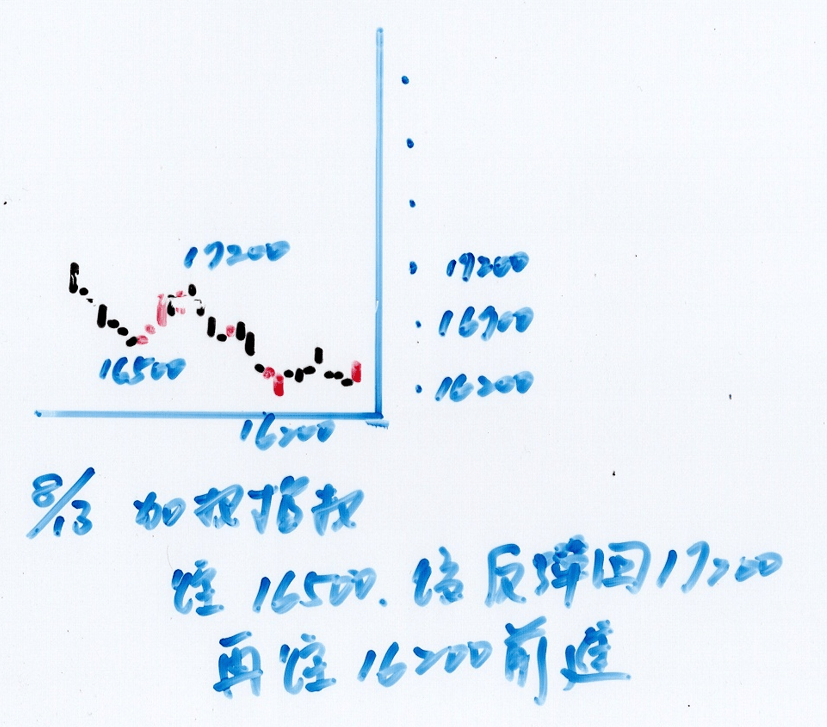 17200
17200
16700
16500
16200
16200
8/13 加权指数
16500. 反彈回17200
再 16200前進